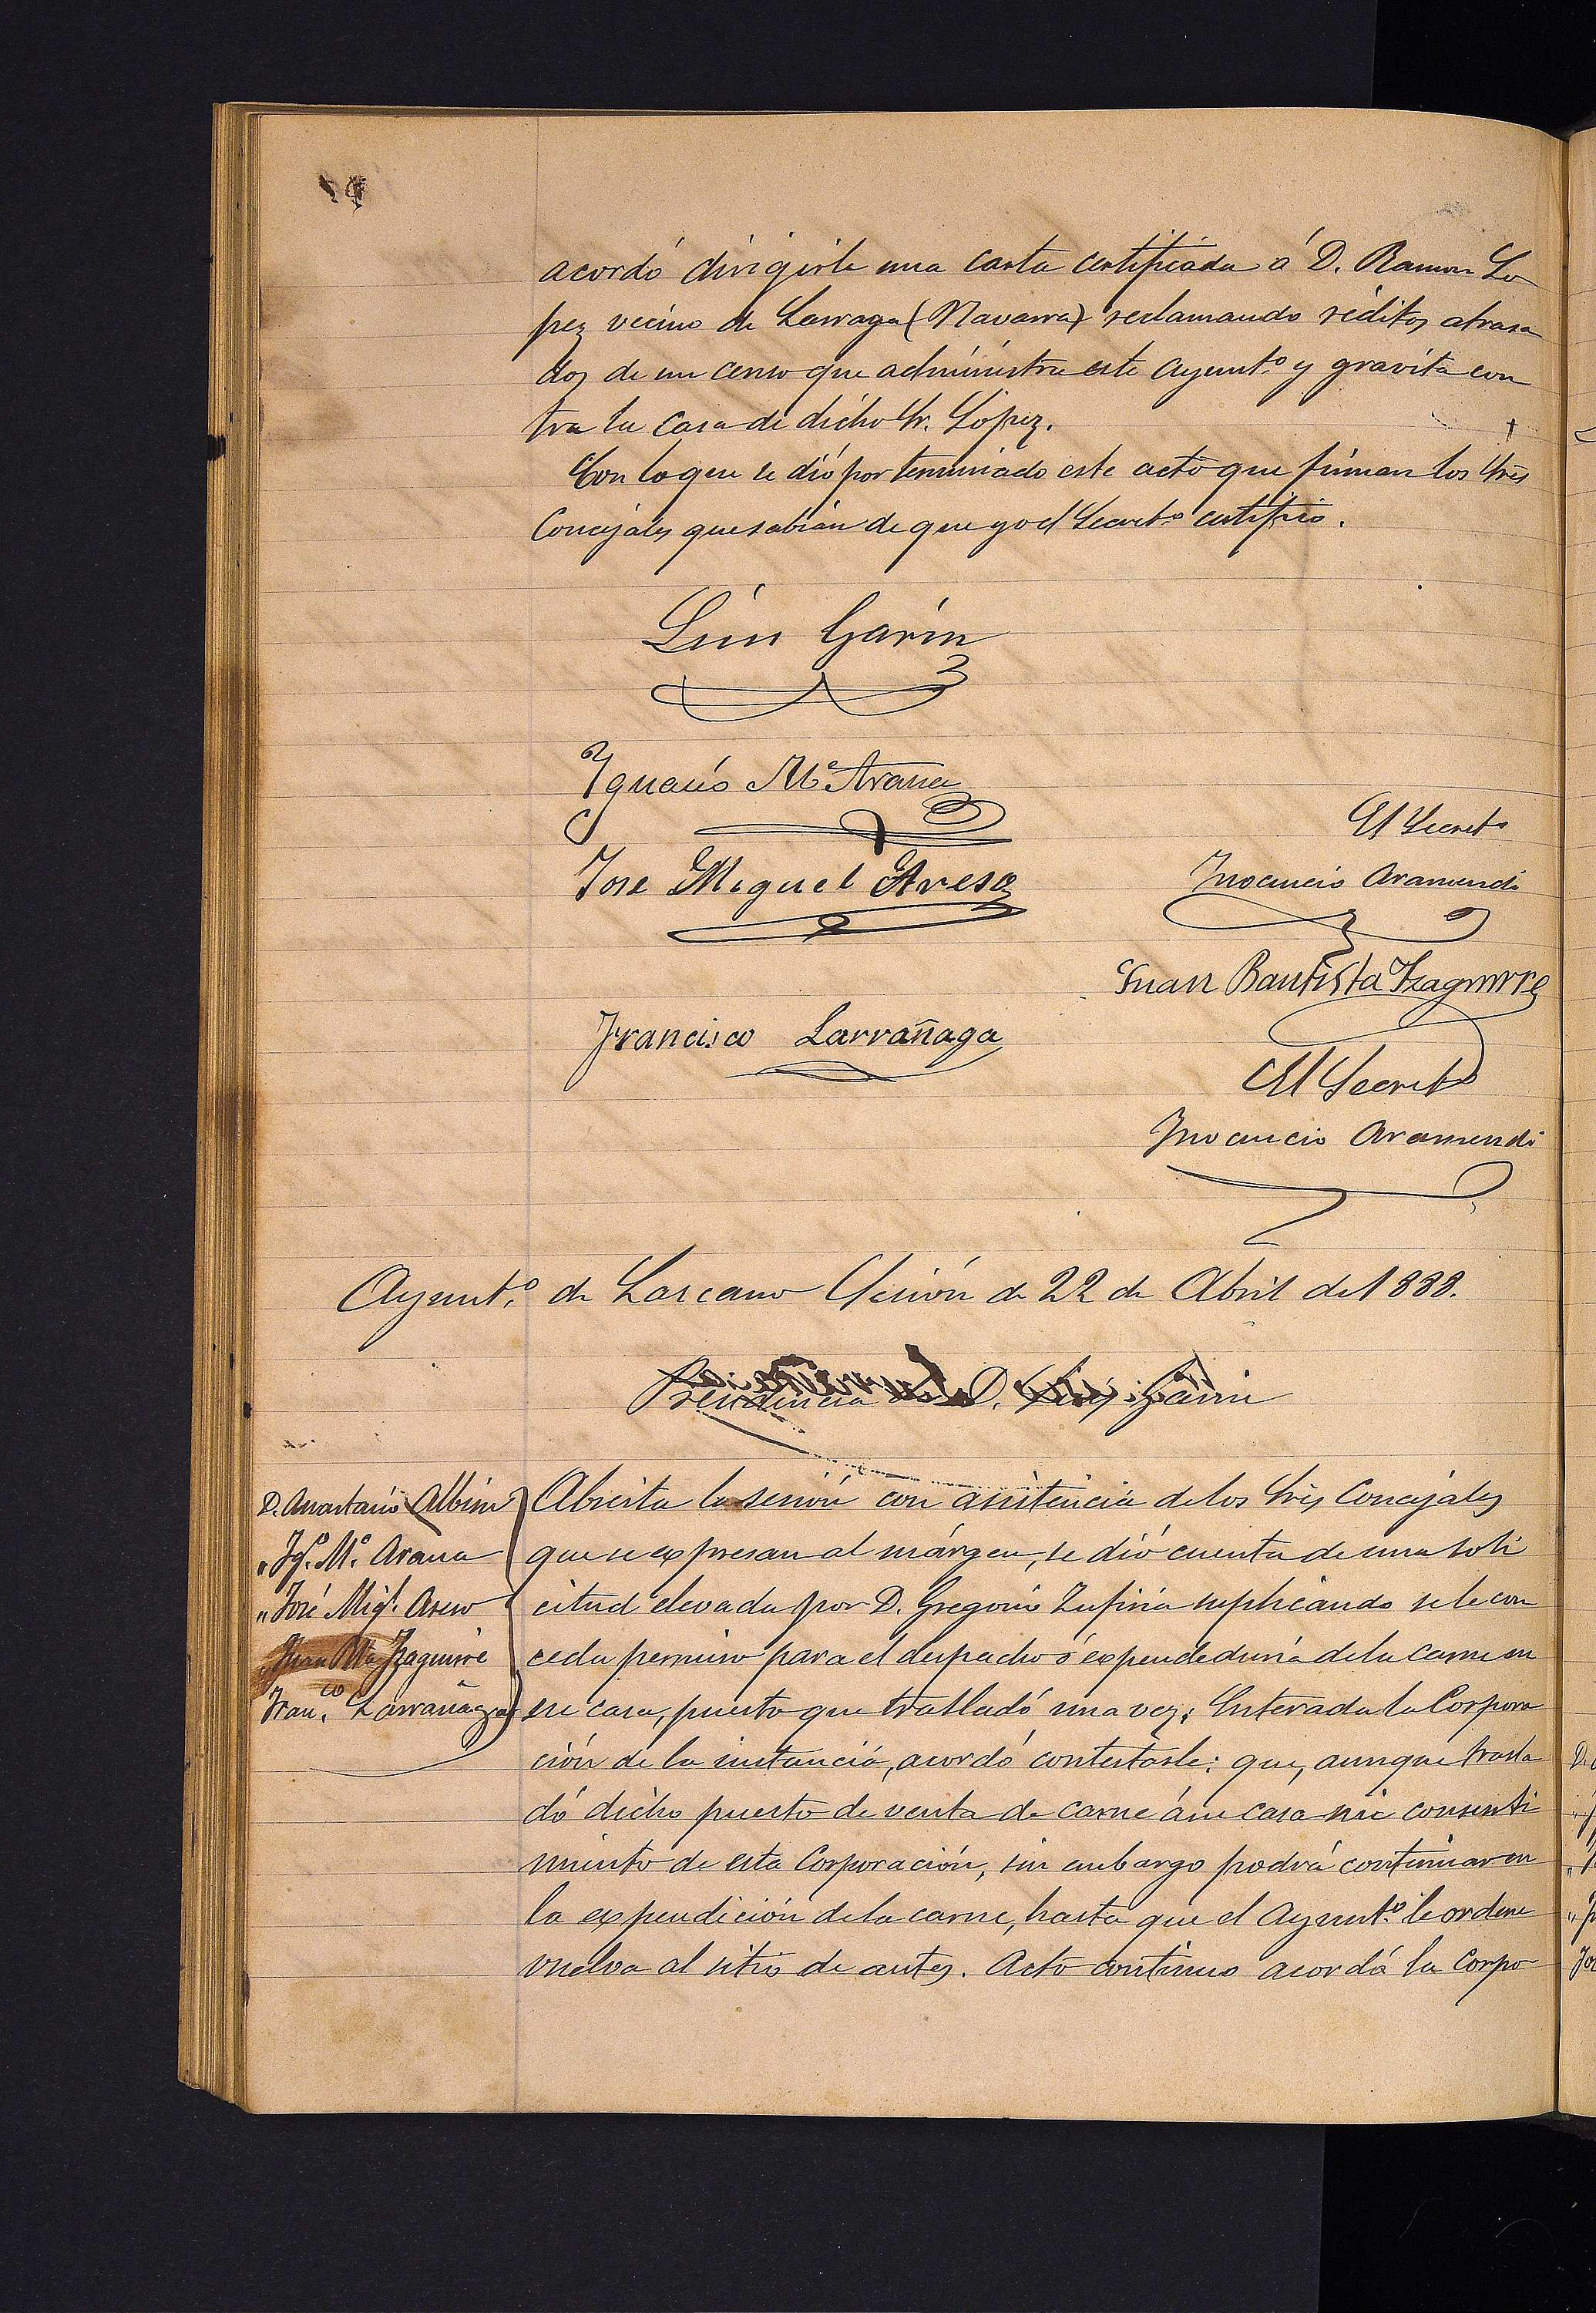 acordó dirigirle una carta certificada á D. Ramon Lo
pez vecino de Larraga (Navarra) reclamando réditos atrasa
dos de un censo que administra este Ayunt.º y gravita con
tra la casa de dicho Sr. López.
Con lo que se dió por terminado este acto que firman los Sres
Concejales que sabian de que yo el Secret.º certifico.
Luis Garin
Ygnacio M.ª Arana
El Secret.º
Jose Miguel Areso
Inocencio Aramendi
Juan Bautista Yzaguirre
Francisco Larrañaga
El Secret.º
Inocencio Aramendi
Ayunt.º de Lazcano Sesión de 22 de Abril de 1888.
Presidencia de D. Luis Garin
D. Anastasio Albisu
" Ig.º M.ª Arana
" José Mig.l Areso
Juan Bta Yzaguirre
Fran.co Larrañaga
Abierta la sesión con asistencia de los Sres Concejales
que se expresan al márgen, se dió cuenta de una soli
citud elevada por D. Gregorio Zufiria suplicando se le con
ceda permiso para el despacho ó expendeduria de la carne en
su casa, puesto que trasladó una vez; Enterada la Corpora
ción de la instancia, acordó contestarle: que, aunque trasla
dó dicho puesto de venta de carne á su casa sin consenti
miento de esta Corporación, sin embargo podrá continuar en
la expendición de la carne, hasta que el Ayunt.º le ordene
vuelva al sitio de antes. Acto continuo acordó la Corpo